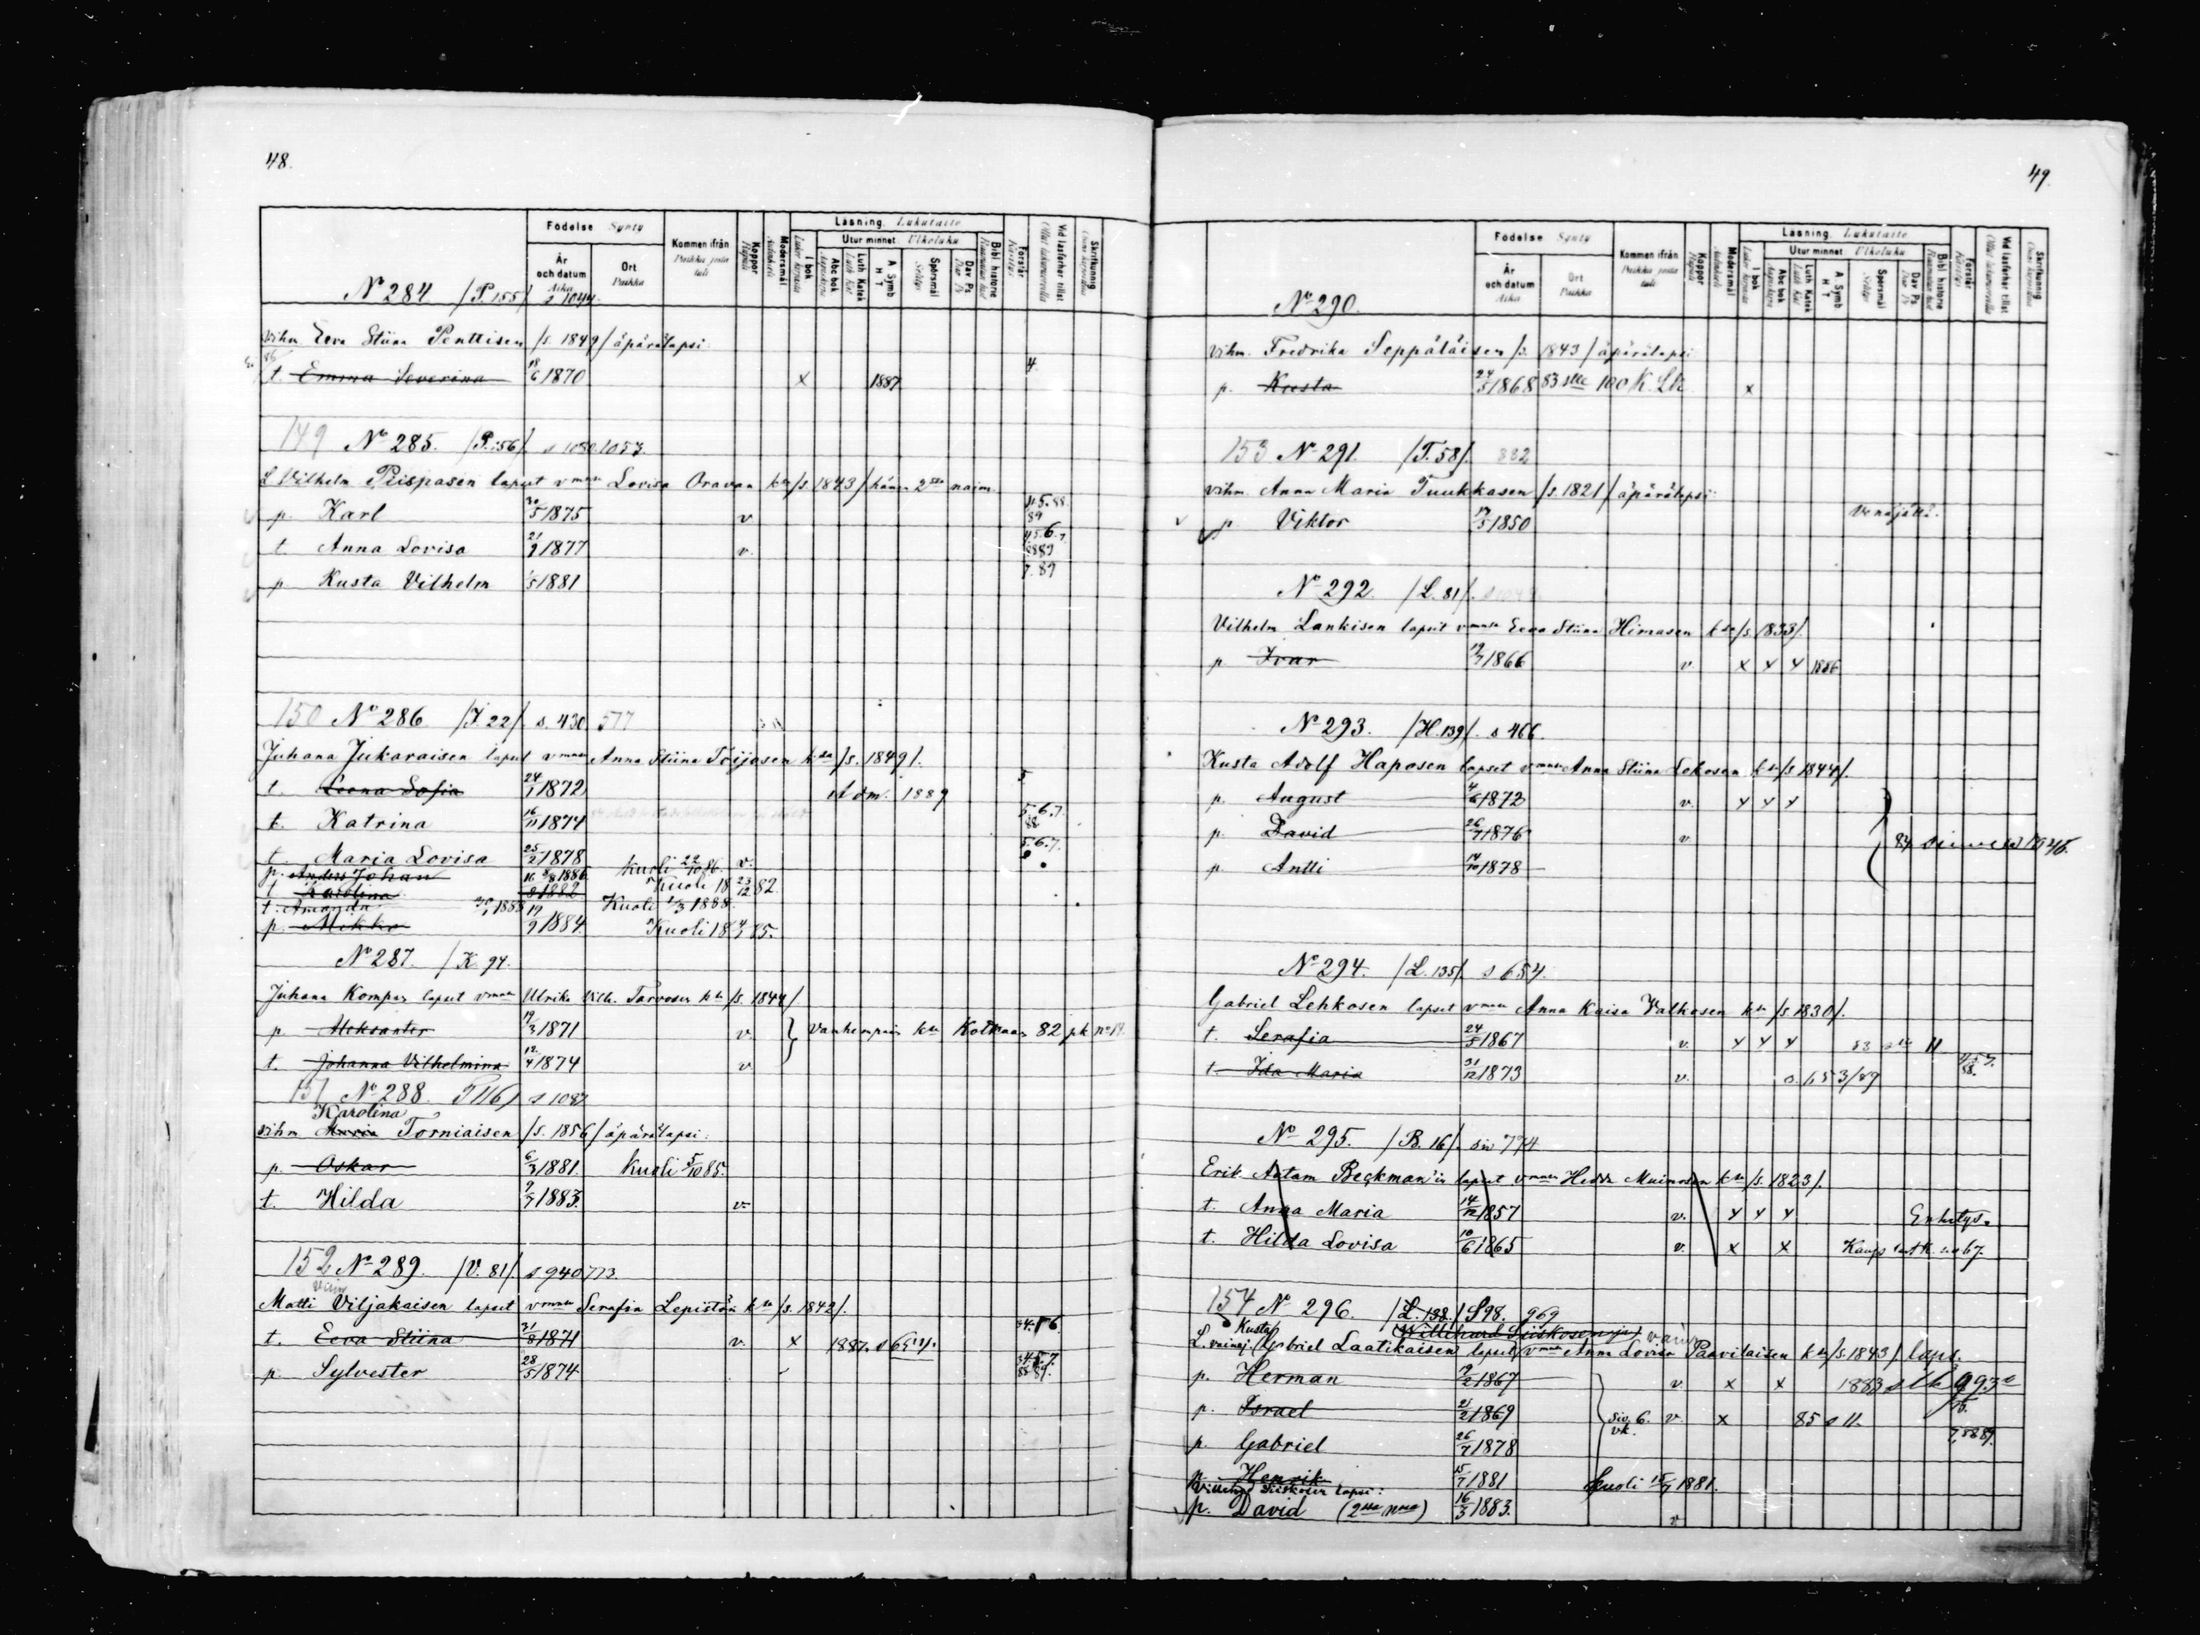 48.
Födelse Synty
År och datum Aika
Ort Paikka
Kommen ifrån Paikka josta tuli
Koppor Rupuli
Modersmål
Läsning. Lukutaito
I bok
Utur minnet Ulkoluku
Abc bok
Luth Katek
A Symb H T
Spörsmål
Dav Ps
Bibl historie
Förstår
Vid läsförhör tillst
Skriftkunnig
No 284 /P.155/ s 1044.
Vihm Eeva Stiina Penttisen /s. 1849/ äpärälapsi:
t. Emma Severina 18/6 1870 x 1887 4.
149 No 285. /P.156/. s 1080 1053.
L Vilhelm Piispasen lapset vmsta Lovisa Oravan kssa /s. 1843/ hänen 2sta naim.
p. Karl 30/5 1875 v 4.5.88. 89
t. Anna Lovisa 21/9 1877 v. 4.5.6.7 8889
p Kusta Vilhelm 1/5 1881 7.89
150 No 286. /J.22/. s. 430 577
Juhana Jukaraisen lapset vmsta Anna Stiina Töijosen kssa /s. 1849/.
t. Leena Sofia 24/1 1872 Adm. 1889 5
t. Katrina 16/11 1874 5.6.7. 88
t. Maria Lovisa 25/2 1878 v. 5.6.7.
p. Anders Johan 16/8 1886 Kuoli 22/10 86.
t Karolina 1882 Kuoli 18 23/12 82.
t. Amanda 30/1 1888 Kuoli 1/3 1888.
p. Mikko 19/9 1884. Kuoli 18 85.
No 287. /K. 97.
Juhana Kompas lapset vmsta Ulrika Vilh. Tarvosen kssa /s. 1844/
p Aleksanter 19/3 1871 v. } vanhempain kssa Kotkaan 82 pk no 19.
t. Johanna Vilhelmina 12/4 1874 v
151 No 288. T 116/ s 1087
Karolina
Vihm Maria Torniaisen /s. 1856/ äpärälapsi:
p. Oskar 6/3 1881. Kuoli 5/10 85.
t. Hilda 9/7 1883. v.
152 No 289. /V. 81/. s 940 773.
Matti Viljakaisen lapset vmsta Serafia Lepistön kssa /s. 1842/.
t. Eeva Stiina 31/8 1871 v. x 1887. s 34.5 6.
p. Sylvester 28/5 1874
49.
Födelse Synty
År och datum Aika
Ort Paikka
Kommen ifrån Paikka josta tuli
Koppor Rupuli
Modersmål
Läsning. Lukutaito
I bok
Utur minnet Ulkoluku
Abc bok
Luth Katek
A Symb H T
Spörsmål
Dav Ps
Bibl historie
Förstår
Vid läsförhör tillst
Skriftkunnig
No 290.
Vihm. Fredrika Seppäläisen /s. 1843/ äpärälapsi
p. Kusta 24/5 1868 83 slle 100 K. Lk. x
153 No 291. /T.58/. 832
vihm. Anna Maria Tuukkasen /s. 1821/ äpärälapsi:
p Viktor 1850 Venäjällä.
No 292. /L. 81/.
Vilhelm Lankisen lapset vmsta Eeva Stiina Himasen kssa /s. 1833/.
p Ivar 19/7 1866 v. x x x 1886
No 293. /H.139/. s 466.
Kusta Adolf Haposen lapset vmsta Anna Stiina Lekosen kssa /s 1844/.
p. August 4/6 1872 v. x x x
p. David 26/7 1876 v
p. Antti 1878
No 294. /L.135/. s 654.
Gabriel Lehkosen lapset vmsta Anna Kaisa Valkosen kssa /s. 1830/.
t. Serafia 24/5 1867 v. x x x 83 11
t Ida Maria 31/12 1873 v. s. 653/89
No 295. /B.16/. siv 774
Erik Aatam Beckman'in lapset vmsta Hedda Muinosen kssa /s. 1823/.
t. Anna Maria 14/12 1857 v. x x x Erhitys.
t. Hilda Lovisa 10/6 1865 v. x x Kaup 67.
154 No 296. /L.138./ S98. 969
Kustaf Villehard Siiskosen ja
L. vainaj. Gabriel Laatikaisen lapset vmsta Anna Lovisa Paavilaisen kssa /s. 1843/. laps.
p. Herman 19/2 1867 v. x x 1883
p. Israel 21/2 1869 siv. 6. vk. v. x 85 s 11.
p. Gabriel 26/7 1878 7,8889.
p. Henrik 15/7 1881 Kuoli 15/7 1881.
Villehard Siiskosen lapsi:
p. David (2sta nmsta) 16/3 1883. v